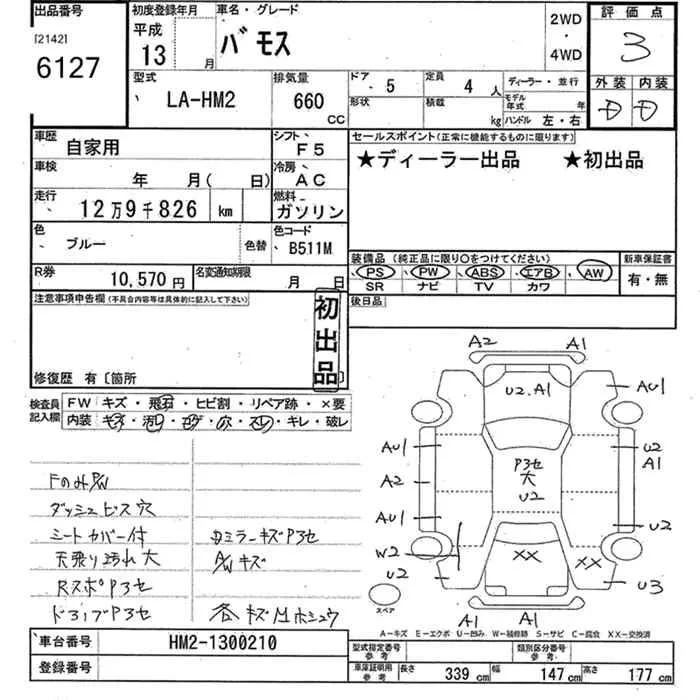 出品番号
[2142]
6127
初度登録年月
平成
13 月
車名・グレード
バモス
2WD
・
4WD
評価点
3
外装 内装
D D
型式
LA-HM2
排気量
660
CC
ドア 5
定員 4 人
形状
積載 kg
ディーラー・並行
モデル年式 年
ハンドル 左・右
車歴 自家用
シフト F5
車検 年 月( 日)
冷房 AC
走行 12万9千826 km
燃料 ガソリン
色 ブルー
色替
色コード B511M
R券 10,570円
名変通知期限 月 日
セールスポイント(正常に機能するものに限ります)
★ディーラー出品 ★初出品
装備品 (純正品に限り○をつけてください)
PS PW ABS エアB AW
SR ナビ TV カワ
新車保証書
有・無
後日品
注意事項申告欄(不具合内容等は具体的に記入して下さい)
初出品
修復歴 有〔箇所 〕
検査員記入欄
FW キズ・飛石・ヒビ割・リペア跡・×要
内装・キズ・汚れ・コゲ・穴・スレ・キレ・破レ
ダッシュビス穴
シートカバー付
天張り汚れ大
RスポP3セ
ドヨップP3セ
ミラーキズP3セ
A/Wキズ
各キズMホシュウ
A2 A1
U2.A1
AU1
AU1
U2
A1
A2
P3セ
大
U2
AU1
U2
W2
XX
XX
U2
U3
スペア
A1 A1
A-キズ E-エクボ U-凹み W-補修跡 S-サビ C-腐食 XX-交換済
車台番号 HM2-1300210
登録番号
型式指定番号
参考
類別区分番号
参考
車庫証明用
参考
長さ 339 cm 幅 147 cm 高さ 177 cm